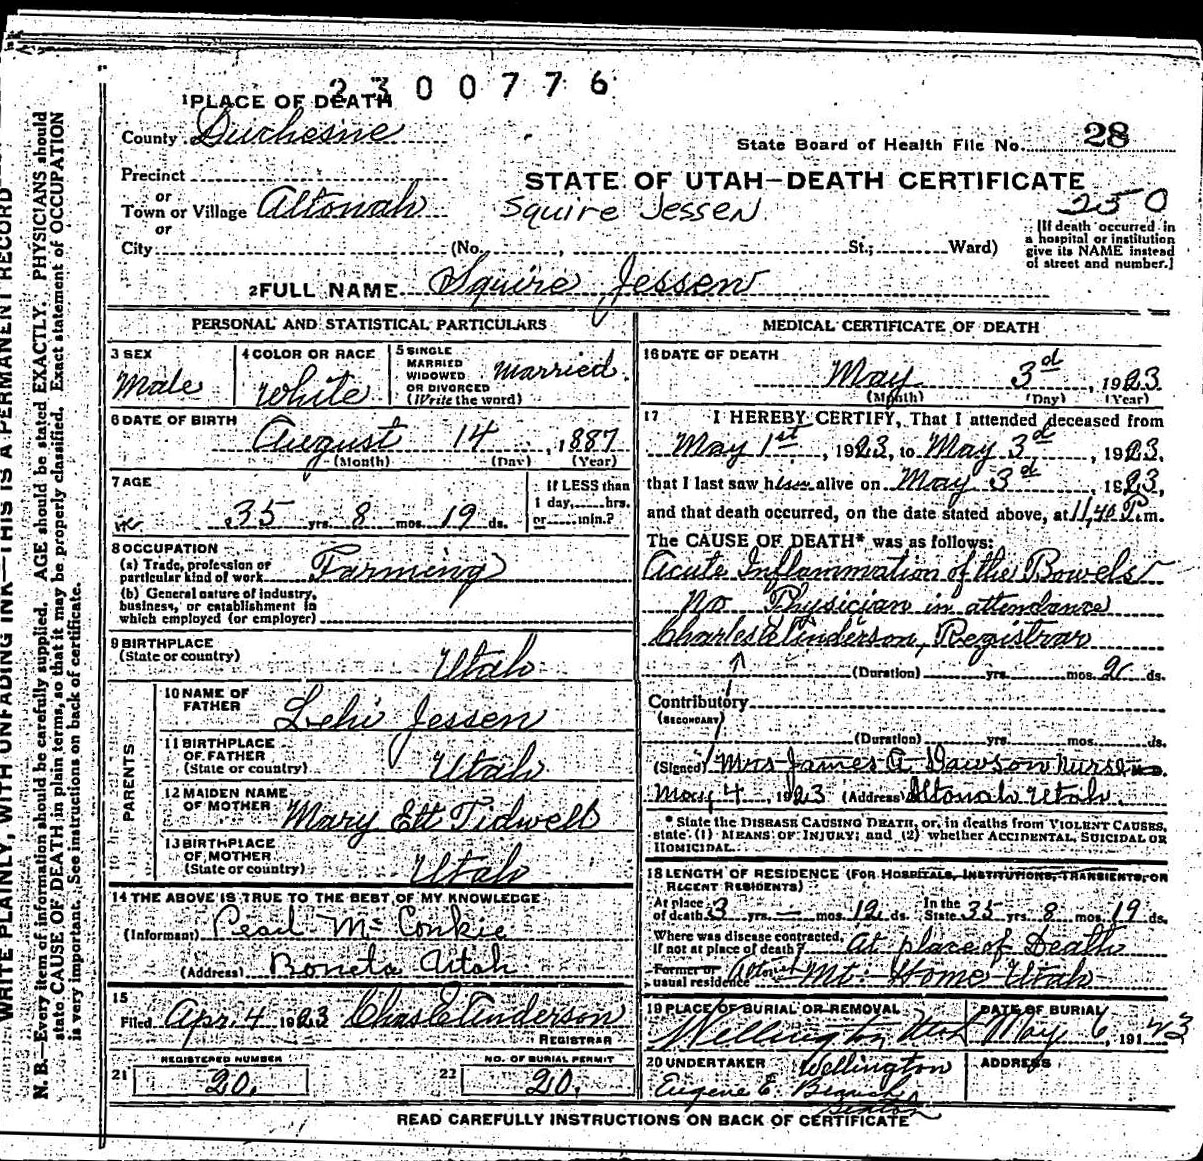 2300776
1 PLACE OF DEATH
County Duchesne
State Board of Health File No. 28
Precinct
or
Town or Village Altonah
or
City (No. , St.; Ward)
STATE OF UTAH—DEATH CERTIFICATE
Squire Jessen
250
[If death occurred in
a hospital or institution
give its NAME instead
of street and number.]
2 FULL NAME Squire Jessen
PERSONAL AND STATISTICAL PARTICULARS
3 SEX
Male
4 COLOR OR RACE
White
5 SINGLE
MARRIED
WIDOWED
OR DIVORCED
(Write the word)
Married.
6 DATE OF BIRTH
August 14, 1887
(Month) (Day) (Year)
7 AGE
35 yrs. 8 mos. 19 ds.
If LESS than
1 day, hrs.
or min.?
8 OCCUPATION
(a) Trade, profession or
particular kind of work Farming
(b) General nature of industry,
business, or establishment in
which employed (or employer)
9 BIRTHPLACE
(State or country)
Utah
PARENTS
10 NAME OF
FATHER
Lehi Jessen
11 BIRTHPLACE
OF FATHER
(State or country)
Utah
12 MAIDEN NAME
OF MOTHER
Mary Ett Tidwell
13 BIRTHPLACE
OF MOTHER
(State or country)
Utah
14 THE ABOVE IS TRUE TO THE BEST OF MY KNOWLEDGE
(Informant) Pearl McConkie
(Address) Boneta Utah
15
Filed Apr. 4 1923 Chas E Anderson
REGISTRAR
REGISTERED NUMBER
21 20.
NO. OF BURIAL PERMIT
22 20.
MEDICAL CERTIFICATE OF DEATH
16 DATE OF DEATH
May 3rd, 1923
(Month) (Day) (Year)
17 I HEREBY CERTIFY, That I attended deceased from
May 1st, 1923, to May 3rd, 1923,
that I last saw him alive on May 3rd, 1923,
and that death occurred, on the date stated above, at 11,40 P.m.
The CAUSE OF DEATH* was as follows:
Acute Inflammation of the Bowels
No Physician in attendance
Charles E Anderson, Registrar
(Duration) yrs. mos. 2 ds.
Contributory
(SECONDARY)
(Duration) yrs. mos. ds.
(Signed) Mrs James A Dawson nurse
May 4, 1923 (Address) Altonah Utah.
* State the DISEASE CAUSING DEATH, or, in deaths from VIOLENT CAUSES,
state (1) MEANS OF INJURY; and (2) whether ACCIDENTAL, SUICIDAL OR
HOMICIDAL.
18 LENGTH OF RESIDENCE (FOR HOSPITALS, INSTITUTIONS, TRANSIENTS, OR
RECENT RESIDENTS)
At place
of death 3 yrs. — mos. 12 ds.
In the
State 35 yrs. 8 mos. 19 ds.
Where was disease contracted,
if not at place of death? At place of Death
Former or
usual residence Mt. Home Utah
19 PLACE OF BURIAL OR REMOVAL
Wellington Utah
DATE OF BURIAL
May 6, 1923
20 UNDERTAKER Wellington
Eugene E.
Sexton
ADDRESS
READ CAREFULLY INSTRUCTIONS ON BACK OF CERTIFICATE
WRITE PLAINLY, WITH UNFADING INK—THIS IS A PERMANENT RECORD
N. B.—Every item of information should be carefully supplied. AGE should be stated EXACTLY. PHYSICIANS should
state CAUSE OF DEATH in plain terms, so that it may be properly classified. Exact statement of OCCUPATION
is very important. See instructions on back of certificate.